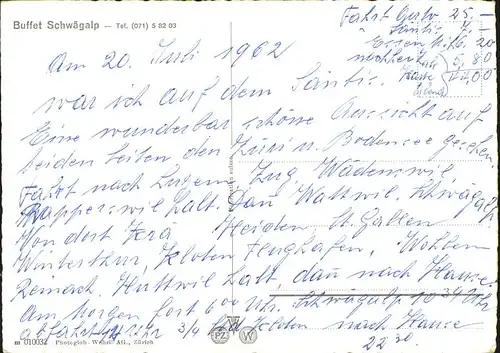 Buffet Schwägalp — Tel. (071) 5 82 03
Fahrt 25.-
Säntis 7.-
Essen 20
nachher 5,80
Am 20. Juli 1962
war ich auf dem Säntis.
Eine wunderbar schöne Aussicht auf
beiden Seiten den Züri u. Bodensee gesehen.
Fahrt nach Luzern, Zug, Wädenswil,
Rapperswil Halt. Dan Wattwil, Schwägalp.
Von dort Heiden St. Gallen
Winterthur, Kloten Flughafen, Wohlen
Huttwil Halt, dan nach Hause.
Am Morgen fort 6 00 Uhr. Schwägalp 10 30 Uhr
3/4 nach Hause
22 30.
m 010032 Photoglob-Wehrli AG., Zürich
PZ W